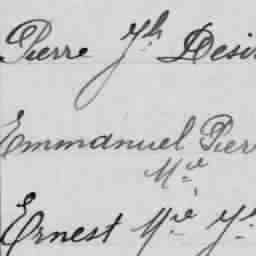 Pierre Jh Desi
Emmanuel Pier
Mie
Ernest Mie Jh